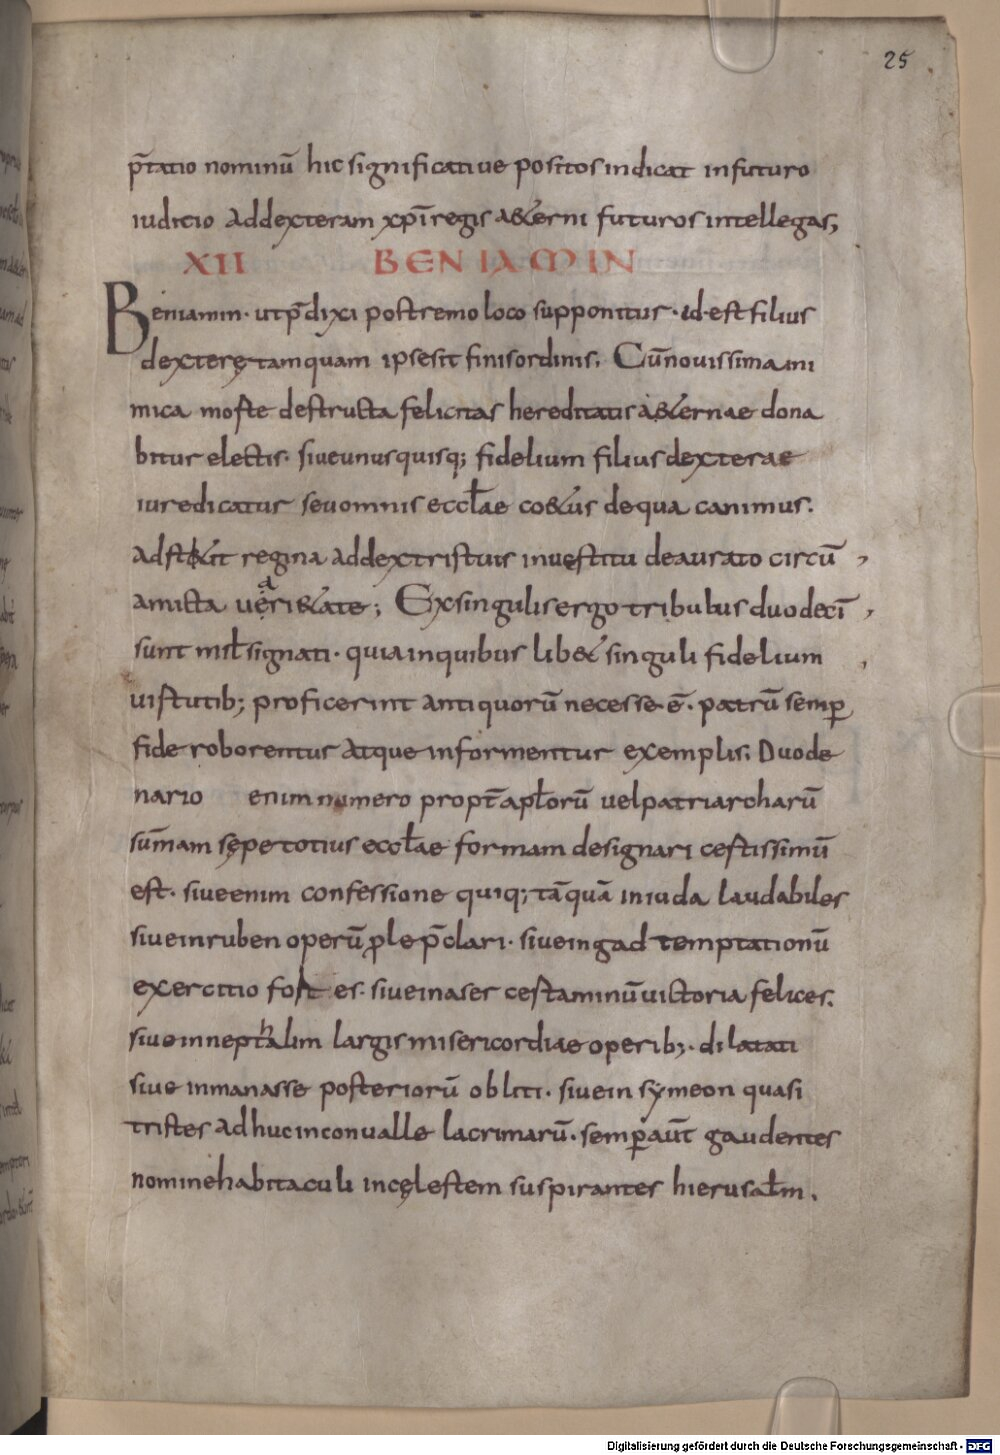 25
p̄tatio nominū hic significative positos indicat in futuro
iuditio ad dexteram xp̄i regis a&erni futuros intellegas;
XII BENIAMIN
Beniamin· ut p̄dixi postremo loco supponitur· id· est filius
dexterę tamquam ipse sit finis ordinis. Cū novissima ini
mica morte destructa felicitas hereditatis a&ernae dona
bitur electis· sive unusquisq; fidelium filius dexterae
iure dicatur seu omnis eccłae co&us de qua canimus.
Adst&it regina ad dextris tuis in vestitu deaurato circū
amicta uari&ate; Ex singulis ergo tribubus duodecī
sunt mił signati· quia in quibuslib& singuli fidelium
virtutib; proficerint antiquorū necesse ē· patrū semp̱
fide roborentur atque informentur exemplis. Duode
nario enim numero propt̄ apłorū vel patriarcharū
sūmam sępe totius eccłae formam designari certissimū
est· sive enim confessione quiq; tāquā in iuda laudabiles
sive in ruben operū ꝓle p̄clari· sive in gad temptationū
exercitio fortes· sive in aser certaminū victoria felices.
sive in nepthalim largis misericordiae operib;· dilatati
sive in manasse posteriorū obliti· sive in symeon quasi
tristes adhuc in convalle lacrimarū· semp̱ aūt gaudentes
nomine habitaculi in cęlestem suspirantes hierusałm.
Digitalisierung gefördert durch die Deutsche Forschungsgemeinschaft - DFG